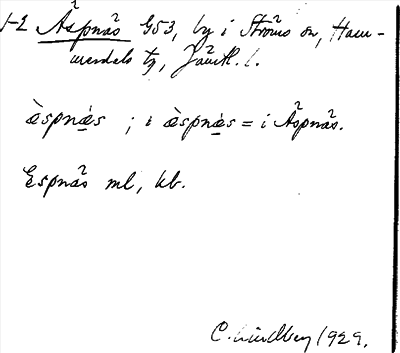 1-2 Åspnäs G53, by i Ströms sn, Ham-
merdals tg, Jämtl. l.
æ̀spnǽ̣s ; i æ̀spnæ̣s = i Åspnäs.
Espnäs ml, kb.
C. Lindberg 1929.